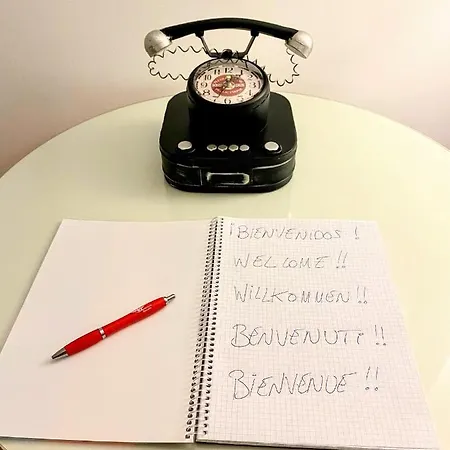 ¡BIENVENIDOS!
WELCOME!!
WILLKOMMEN!!
BENVENUTI!!
BIENVENUE!!